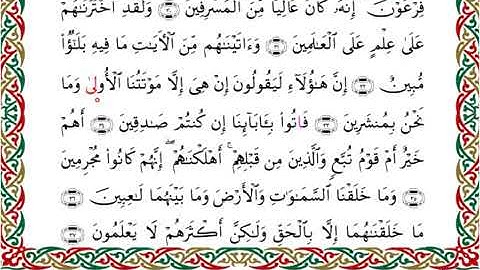 فِرْعَوْنَ ۚ إِنَّهُۥ كَانَ عَالِيًا مِّنَ ٱلْمُسْرِفِينَ ﴿٣١﴾ وَلَقَدِ ٱخْتَرْنَٰهُمْ
عَلَىٰ عِلْمٍ عَلَى ٱلْعَٰلَمِينَ ﴿٣٢﴾ وَءَاتَيْنَٰهُم مِّنَ ٱلْـَٔايَٰتِ مَا فِيهِ بَلَٰٓؤٌا۟
مُّبِينٌ ﴿٣٣﴾ إِنَّ هَٰٓؤُلَآءِ لَيَقُولُونَ إِنْ هِىَ إِلَّا مَوْتَتُنَا ٱلْأُولَىٰ وَمَا
نَحْنُ بِمُنشَرِينَ ﴿٣٥﴾ فَأْتُوا۟ بِـَٔابَآئِنَآ إِن كُنتُمْ صَٰدِقِينَ ﴿٣٦﴾ أَهُمْ
خَيْرٌ أَمْ قَوْمُ تُبَّعٍ وَٱلَّذِينَ مِن قَبْلِهِمْ ۚ أَهْلَكْنَٰهُمْ ۖ إِنَّهُمْ كَانُوا۟ مُجْرِمِينَ
وَمَا خَلَقْنَا ٱلسَّمَٰوَٰتِ وَٱلْأَرْضَ وَمَا بَيْنَهُمَا لَٰعِبِينَ
مَا خَلَقْنَٰهُمَآ إِلَّا بِٱلْحَقِّ وَلَٰكِنَّ أَكْثَرَهُمْ لَا يَعْلَمُونَ